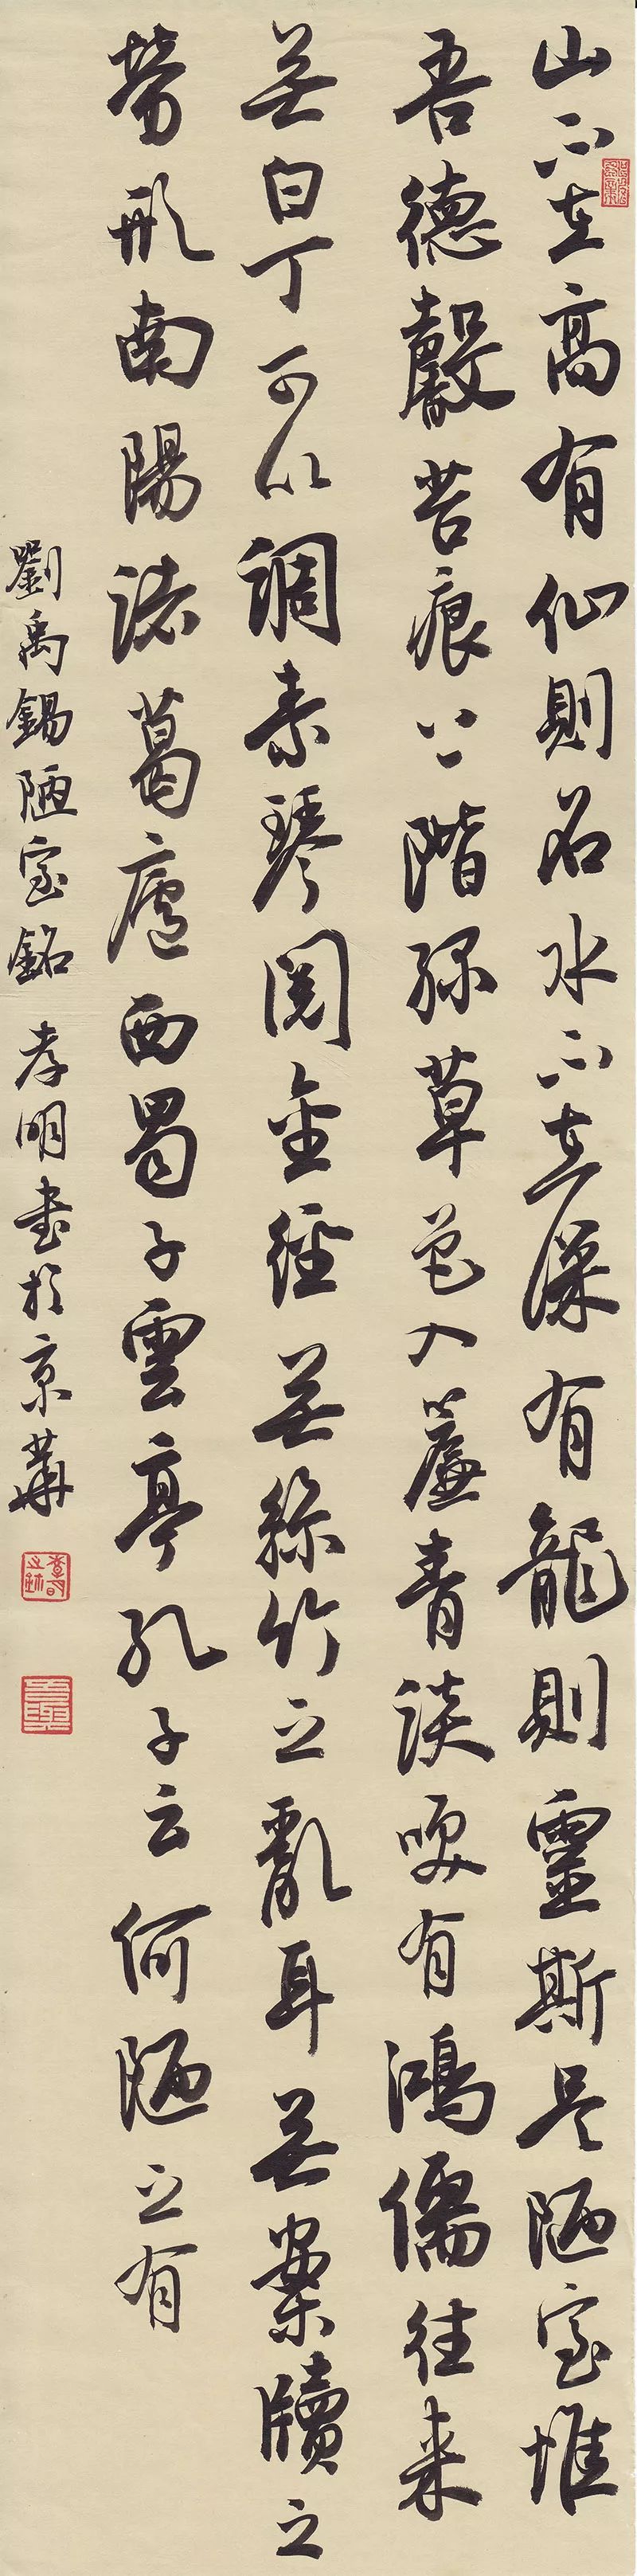 山不在高有仙則名水不在深有龍則靈斯是陋室惟
吾德馨苔痕上階綠草色入簾青談咲有鴻儒往来
無白丁可以調素琴閱金經無絲竹之亂耳無案牘之
勞形南陽諸葛廬西蜀子雲亭孔子云何陋之有
劉禹錫陋室銘 孝明書於京華